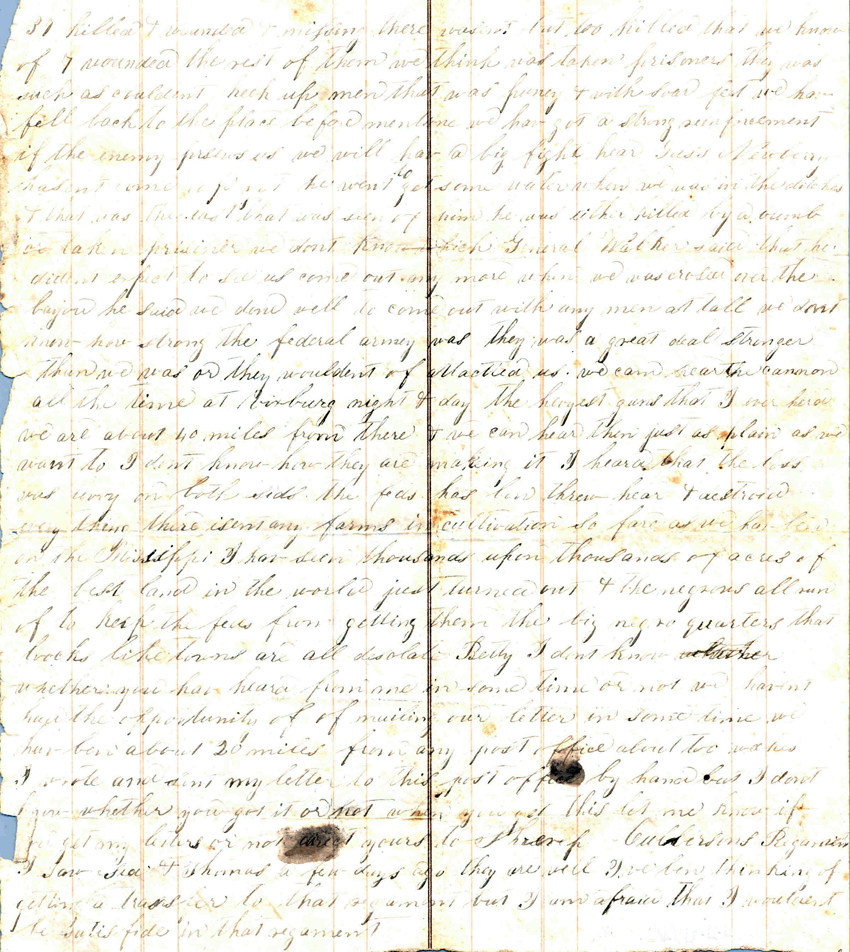 39 killed & wounded & missing there wasent but too killed that we know
of 7 wounded the rest of them we think was taken prisoners they was
such as couldent keep up men that was puney & with soar feet we hav
fell back to the place before mentione we hav got a strong reinforcement
if the enemy presses us we will hav a big fight hear Newberry
hasent come up yet he went to get some water when we was in the
& that was the last that was seen of him he was either killed by a bumb
or taken prisiner we dont know which General Walker said that he
dident expect to see us come out any more when we was crosed over the
bayou he said we done well to come out with any men at tall we dont
know how strong the federal army was they was a great deal stronger
than we was or they wouldent of attacted us we can hear the cannon
all the time at night & day the largest guns that I ever herd
we are about 40 miles from there & we can hear them just as plain as we
want to I dont know how they are making it I heard that the loss
was on both sids the feds has ben threw hear &
every thing there isent any farms in cultivation so fare as we hav ben
on the I hav seen thousands upon thousands of acres of
the best land in the world just turned out & the negrous all run
of to keep the feds from getting them the big negro quarters that
looks like towns are all desolate Betty I dont know
whether you hav heard from me in some time or not we havent
had the opportunity of of mailing our letter in some time we
hav ben about 20 miles from any post office about too weeks
I wrote and sent my letter to this post office by hand but I dont
know whether you got it or not when you get this let me know if
you get my letters or not direct yours to Regament
I saw & Thomas a few days ago they are well I've ben thinking of
geting a transfer to that regament but I am afraid that I wouldent
be satisfide in that regament